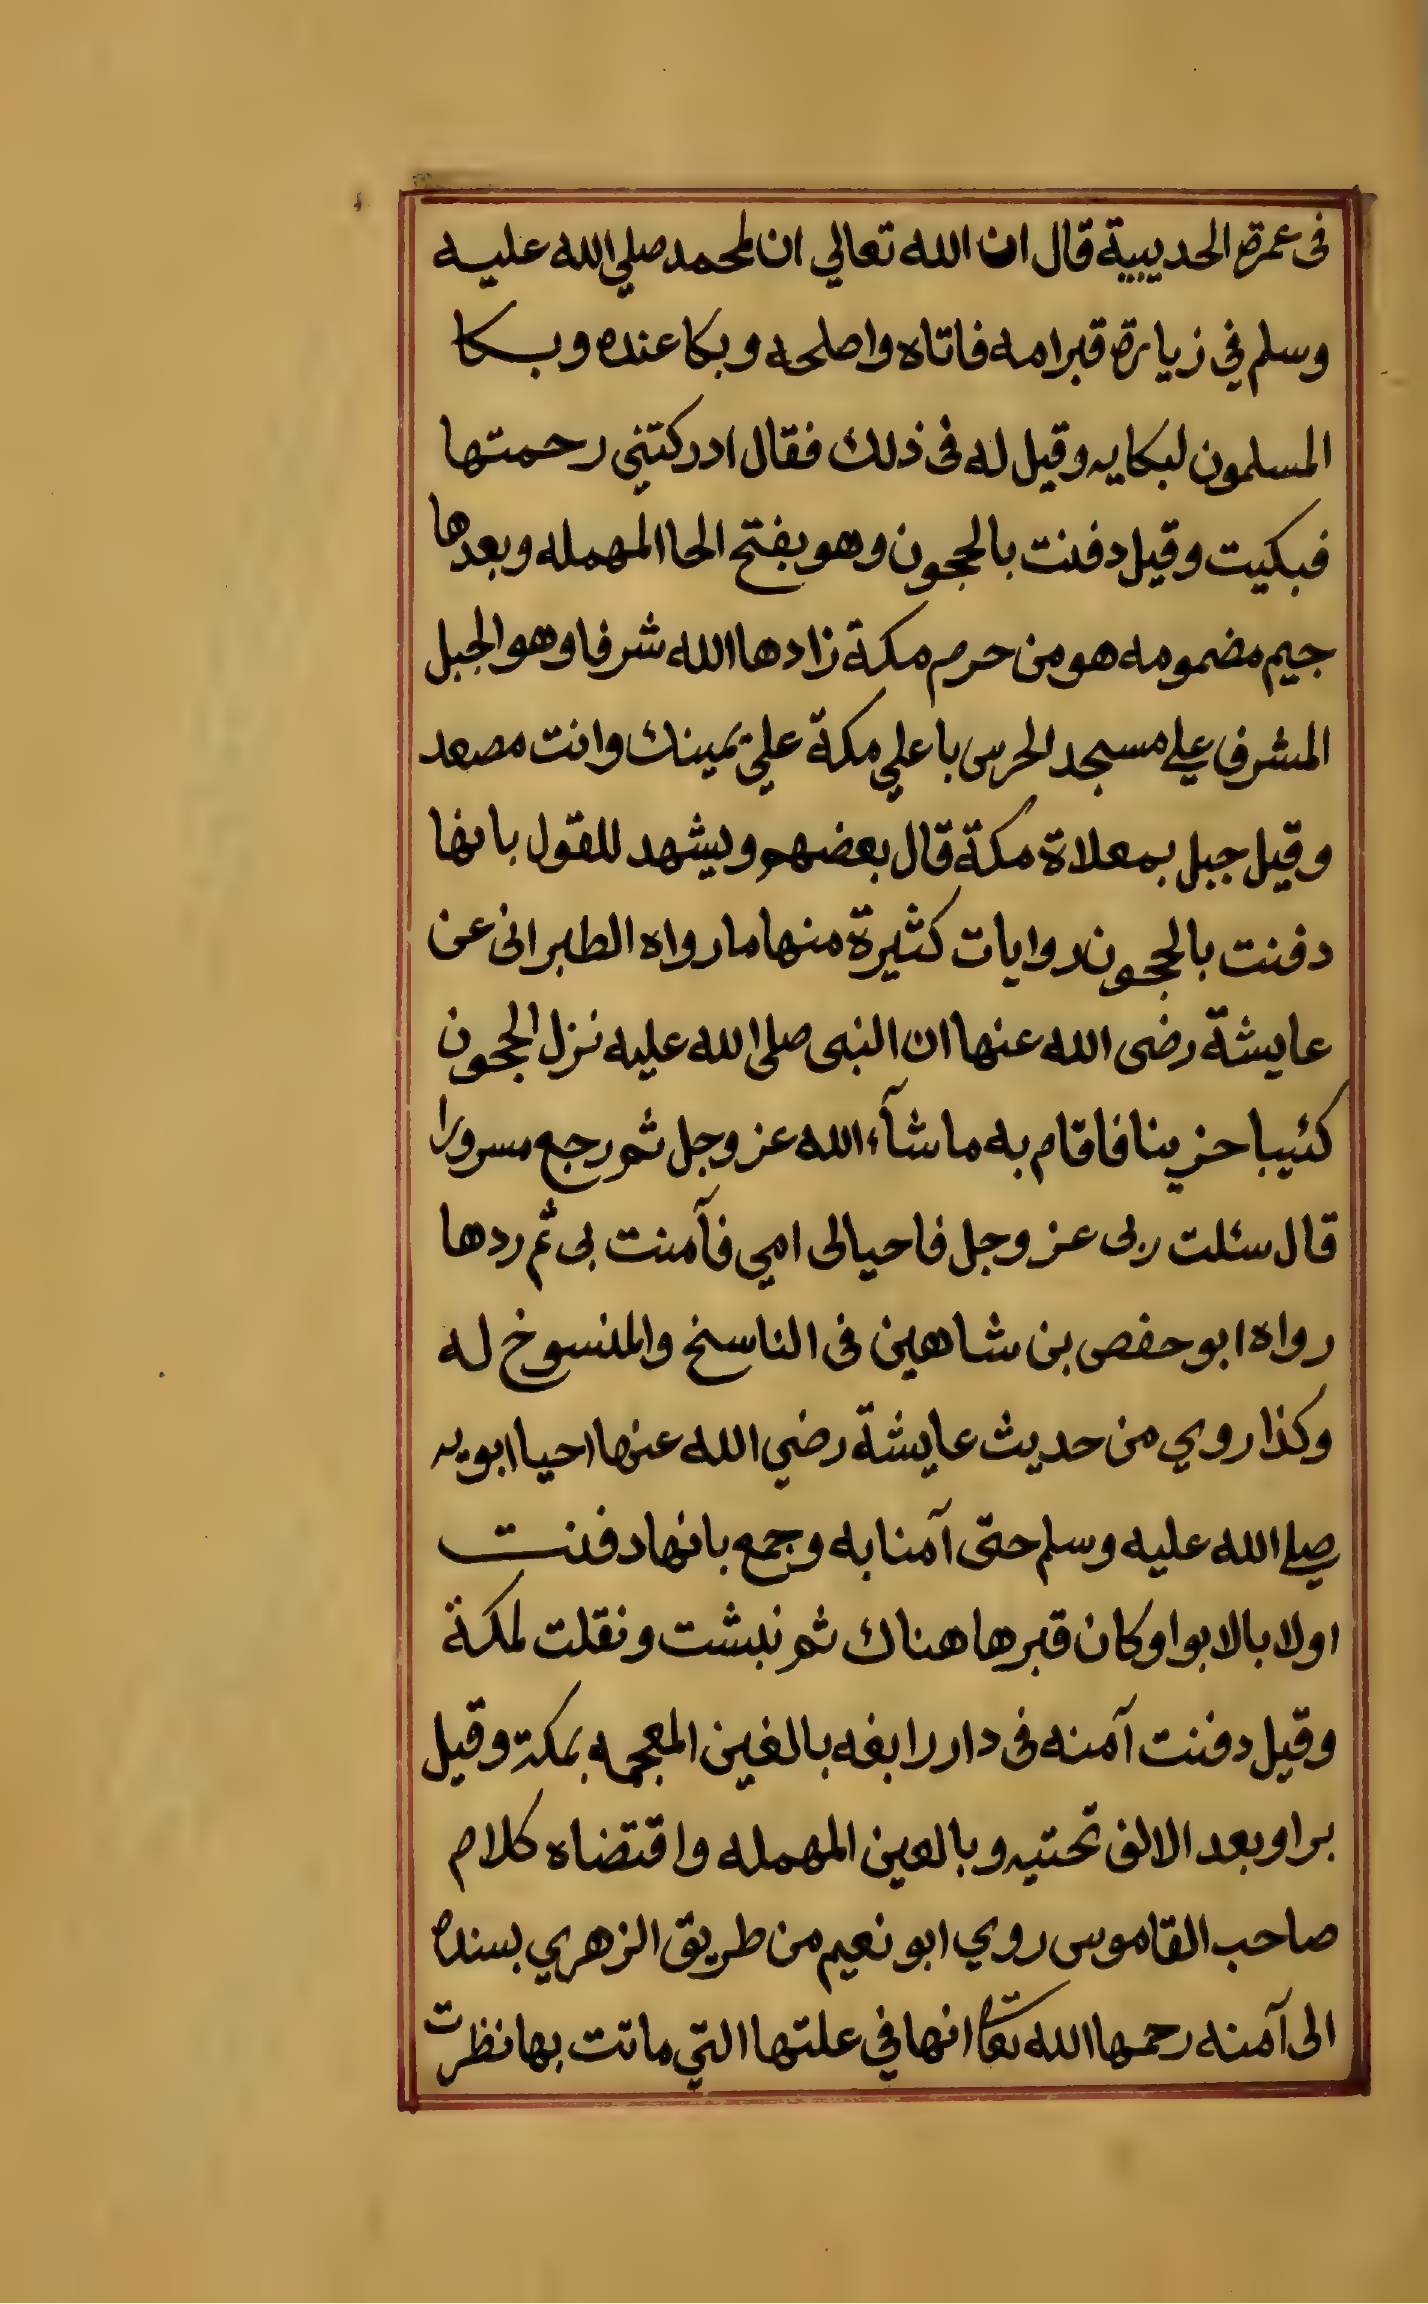 في عمرة الحديبية قال ان الله تعالي ان لمحمد صلي الله عليه
وسلم في زيارة قبر امه فاتاه واصلحه وبكا عنده وبكا
المسلمون لبكايه وقيل له في ذلك فقال ادركتني رحمتها
فبكيت وقيل دفنت بالحجون وهو بفتح الحا المهمله وبعدها
جيم مضمومه هو من حرم مكة زادها الله شرفا وهو الجبل
المشرف علي مسجد الحرس باعلي مكة علي يمينك وانت مصعد
وقيل جبل بمعلاة مكة قال بعضهم ويشهد للقول بانها
دفنت بالحجون روايات كثيرة منها ما رواه الطبرانى عن
عايشة رضى الله عنها ان النبى صلى الله عليه نزل الحجون
كئيبا حزينا فاقام به ما شآء الله عز وجل ثم رجع مسرورا
قال سئلت ربى عز وجل فاحيا لى امي فآمنت بى ثم ردها
رواه ابو حفص بن شاهين فى الناسخ والمنسوخ له
وكذا روي من حديث عايشة رضي الله عنها احيا ابويه
صلي الله عليه وسلم حتى آمنا به وجمع بانها دفنت
اولا بالابوا وكان قبرها هناك ثم نبشت ونقلت لمكة
وقيل دفنت آمنه فى دار رابغه بالغين المعجمه بمكة وقيل
برا وبعد الالف تحتيه وبالعين المهمله واقتضاه كلام
صاحب القاموس روي ابو نعيم من طريق الزهري بسنده
الى آمنه رحمها الله تعا انها في علتها التي ماتت بها نظرت